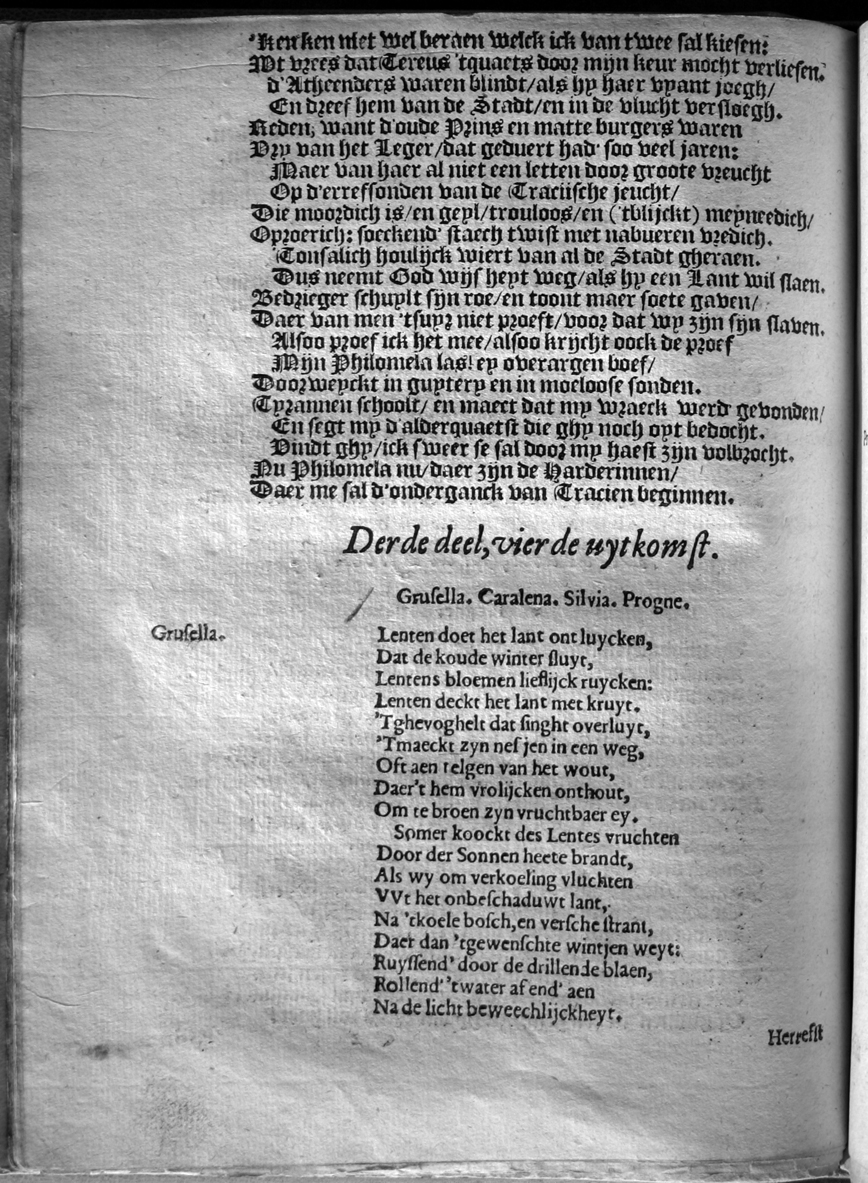 'Ken ken niet wel beraen welck ick van twee sal kiesen:
Wt vrees dat Tereus 'tquaets door mijn keur mocht verliesen.
d'Atheenders waren blindt/als hy haer vyant joegh/
En dreef hem van de Stadt/en in de vlucht versloegh.
Reden, want d'oude Prins en matte burgers waren
Vry van het Leger/dat geduert had' soo veel jaren:
Maer van haer al niet een letten door groote vreucht
Op d'erref sonden van de Traciische jeucht/
Die moordich is/en geyl/trouloos/en ('tblijckt) meyneedich/
Oproerich: soeckend' staech twist met nabueren vredich.
'Tonsalich houlijck wiert van al de Stadt gheraen.
Dus neemt God wijs heyt weg/als hy een Lant wil slaen.
Bedrieger schuylt sijn roe/en toont maer soete gaven/
Daer van men 'tsuyr niet proeft/voor dat wy zijn sijn slaven.
Alsoo proef ick het mee/alsoo krijcht oock de proef
Mijn Philomela las! ey overargen boef/
Doorweyckt in guytery en in moeloose sonden.
Tyrannen schoolt/ en maect dat my wraeck werd' gevonden/
En segt my d'alderquaetst die ghy noch oyt bedocht.
Vindt ghy/ick sweer se sal door my haest zijn volbrocht.
Nu Philomela nu/daer zijn de Harderinnen/
Daer me sal d'onderganck van Tracien beginnen.
Derde deel, vierde uytkomst.
Grusella. Caralena. Silvia. Progne.
Grusella. Lenten doet het lant ontluycken,
Dat de koude winter sluyt,
Lentens bloemen lieflijck ruycken:
Lenten deckt het lant met kruyt.
'Tghevoghelt dat singht overluyt,
'Tmaeckt zyn nesjen in een weg,
Oft aen telgen van het wout,
Daer't hem vrolijcken onthout,
Om te broen zyn vruchtbaer ey.
Somer koockt des Lentes vruchten
Door der Sonnen heete brandt,
Als wy om verkoeling vluchten
VVt het onbeschaduwt lant,
Na 'tkoele bosch, en versche strant,
Daer dan 'tgewenschte wintjen weyt:
Ruyssend' door de drillende blaen,
Rollend' 'twater af end' aen
Na de licht beweechlijckheyt.
Herrefst